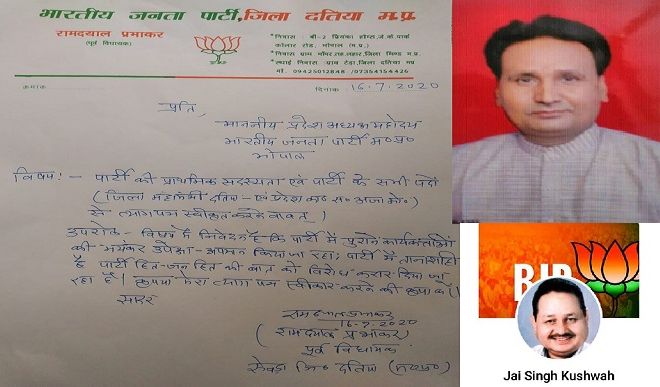 भारतीय जनता पार्टी, जिला दतिया म.प्र.
रामदयाल प्रभाकर
(पूर्व विधायक)
*निवास : बी-2 प्रियंका होम्स, जे.के.पार्क
कोलार रोड, भोपाल (म.प्र.)
*निवास ग्राम लहार, जिला भिण्ड म.प्र.
*स्थाई निवास : ग्राम टेड़ा, जिला दतिया मप्र
मो. 09425012848 / 07354154426
क्रमांक
दिनांक 16.7.2020
प्रति,
माननीय प्रदेश अध्यक्ष महोदय
भारतीय जनता पार्टी म०प्र०
भोपाल
विषय :- पार्टी की प्राथमिक सदस्यता एवं पार्टी के सभी पदों
(जिला महामंत्री दतिया - एवं प्रदेश का० स० अजा मो०)
से त्यागपत्र स्वीकृत करने वावत।
उपरोक्त विषय में निवेदन है कि पार्टी में पुराने कार्यकर्ताओं
की भयंकर उपेक्षा-अपमान किया जा रहा, पार्टी में तानाशाही
है पार्टी हित-जन हित की बात को विरोध करार दिया जा
रहा है। कृपया मेरा त्याग पत्र स्वीकार करने की कृपा करें।
सादर
रामदयाल प्रभाकर
16.7.2020
(रामदयाल प्रभाकर)
पूर्व विधायक
सेवढ़ा जि० दतिया (म०प्र०)
BJP
Jai Singh Kushwah